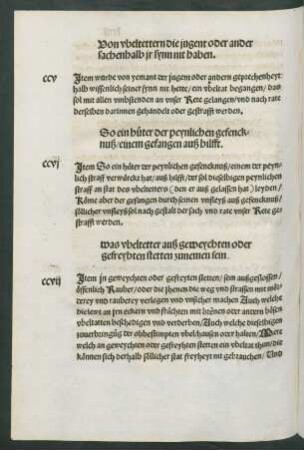 Von vbelttettern die jugent oder ander
sachenhalb jr synn nit haben.
ccv
Item wurde von yemant der jugent oder andern geprechenheyt
halb wissenlich seiner synn nit hette / ein vbeltat begangen / das
sol mit allen vmbstenden an vnser Rete gelangen / vnd nach rate
derselben darinnen gehandelt oder gestrafft werden.
So ein hüter der peynlichen gefenck-
nuß / einem gefangen auß hilfft.
ccvj
Item So ein hüter der peynlichen gefencknuß / einem der peyn-
lich straff verwürckt hat / auß hilfft / der sol dieselbigen peynlichen
straff an stat des vbelteters ( den er auß gelassen hat ) leyden /
Käme aber der gefangen durch seinen vnfleyß auß gefencknuß /
söllicher vnfleyß sol nach gestalt der sach vnd rate vnser Rete ge-
strafft werden.
was vbeltetter auß geweychten oder
gefreyhten stetten zunemen sein.
ccvij
Item jn geweychten oder gefreyten stetten / sein außgeslossen /
öffenlich Rauber / oder die jhenen die weg vnd strassen mit mör-
derey vnd rauberey verlegen vnd vnsicher machen Auch welche
die lewt an jren eckern vnd früchten mit brönen oder andern bösen
vbeltatten beschedigen vnd verderben / Auch welche dieselbigen
zuuerbringüg der obbestimpten vbel hausen oder halten / Mere
welch an geweychten oder gefreyhten stetten ein vbeltat thun / die
können sich derhalb söllicher stat freyheyt nit gebrauchen / Vnd